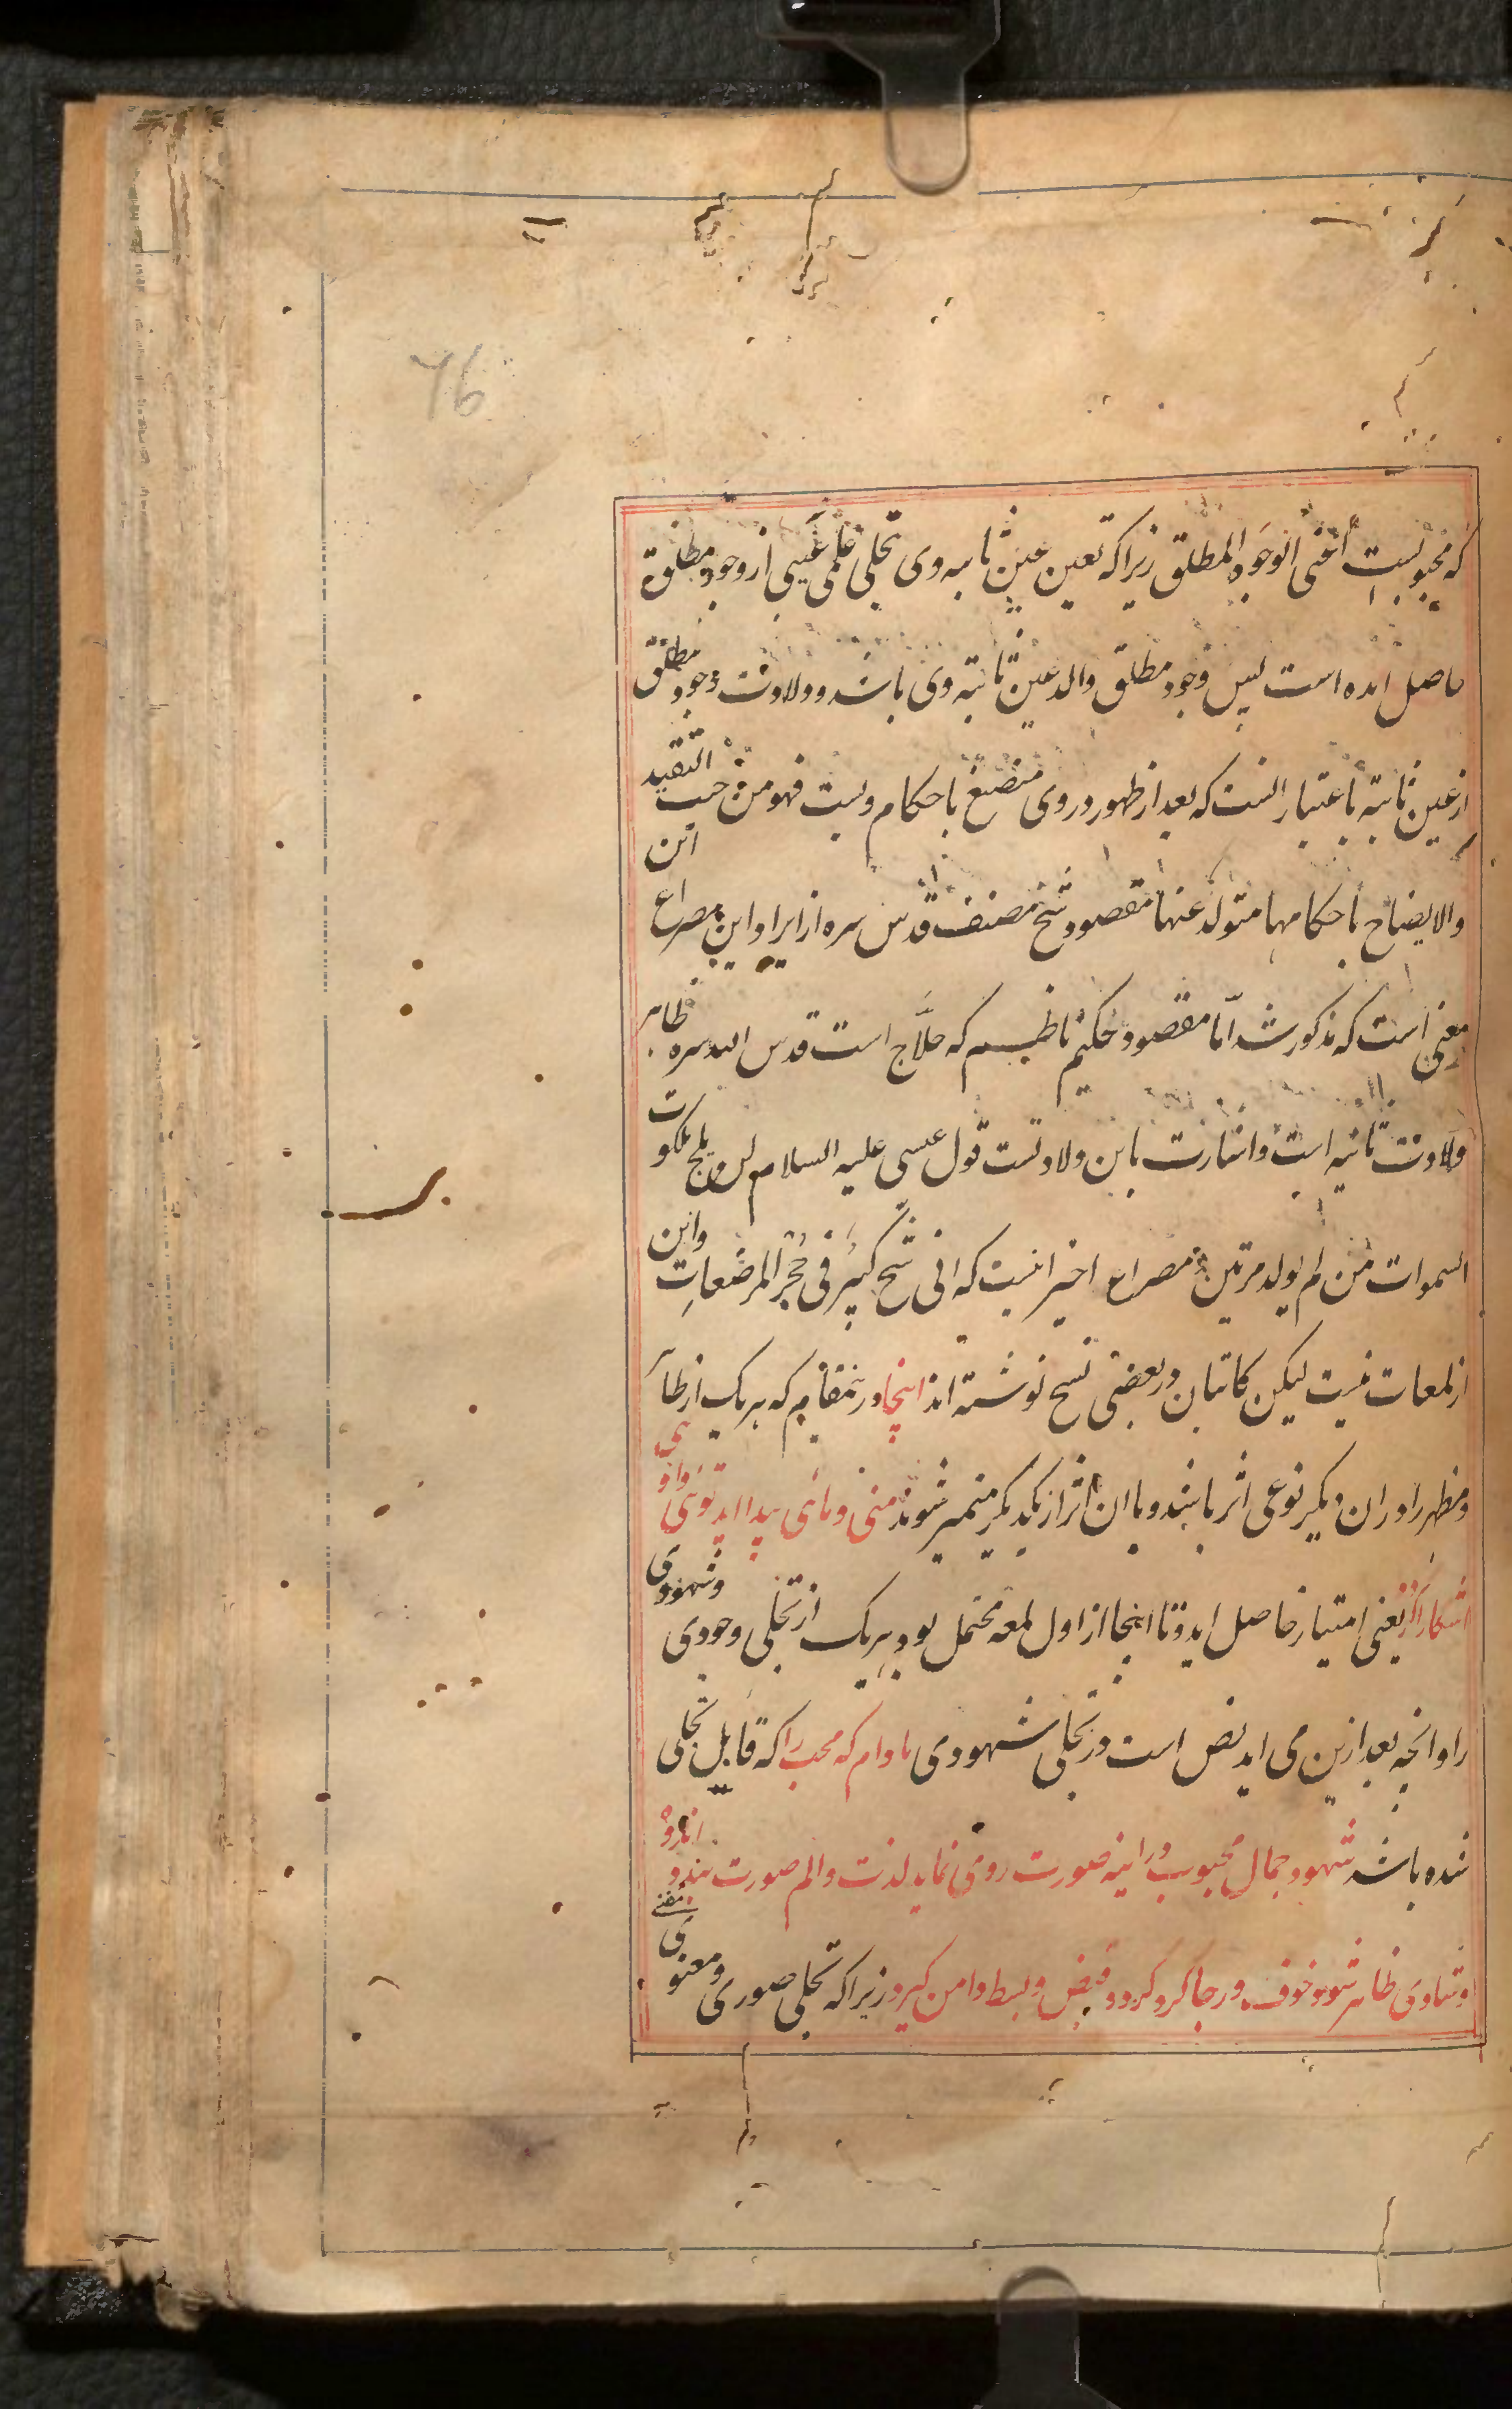 76
که محبوبیست اعنی الوجود المطلق زیرا که تعین عین ثابته وی تجلی علمی غیبی از وجود مطلق
حاصل امده است پس وجود مطلق والد عین ثابته وی باشد و ولادت وجود مطلق
از عین ثابته باعتبار انست که بعد از ظهور در وی منصبغ باحکام ویست فهو من حیث التقید
والانصباغ باحکامها متولد عنها مقصود شیخ مصنف قدس سره از ایراد این مصراع این
معنی است که مذکور شد اما مقصود حکیم ناظم که حلاج است قدس الله سره ظاهر
ولادت ثانیه است و اشارت باین ولادتست قول عیسی علیه السلام لن یلج ملکوت
السموات من لم یولد مرتین مصراع اخیر اینست که انی شیخ کبیر فی حجر المرضعات واین
از لمعات نیست لیکن کاتبان در بعضی نسخ نوشته اند اینجا درین مقام که هر یک از ظاهر
ومظهر را در ان دیگر نوعی اثر باشد و بان اثر از یکدیگر متمیز شوند منی و مائی پیدا اید توئی و اوئی
اشکارا گردد یعنی امتیاز حاصل اید و تا اینجا از اول لمعه محتمل بود هر یک از تجلی وجودی وشهودی
را وانچه بعد ازین می اید نص است در تجلی شهودی مادام که محب را که قابل تجلی
شده باشد شهود جمال محبوب در اینه صورت روی نماید لذت والم صورت بندد اندوه
وشادی ظاهر شود خوف و رجا گرد گردد قبض و بسط دامن گیرد زیرا که تجلی صوری ومعنوی